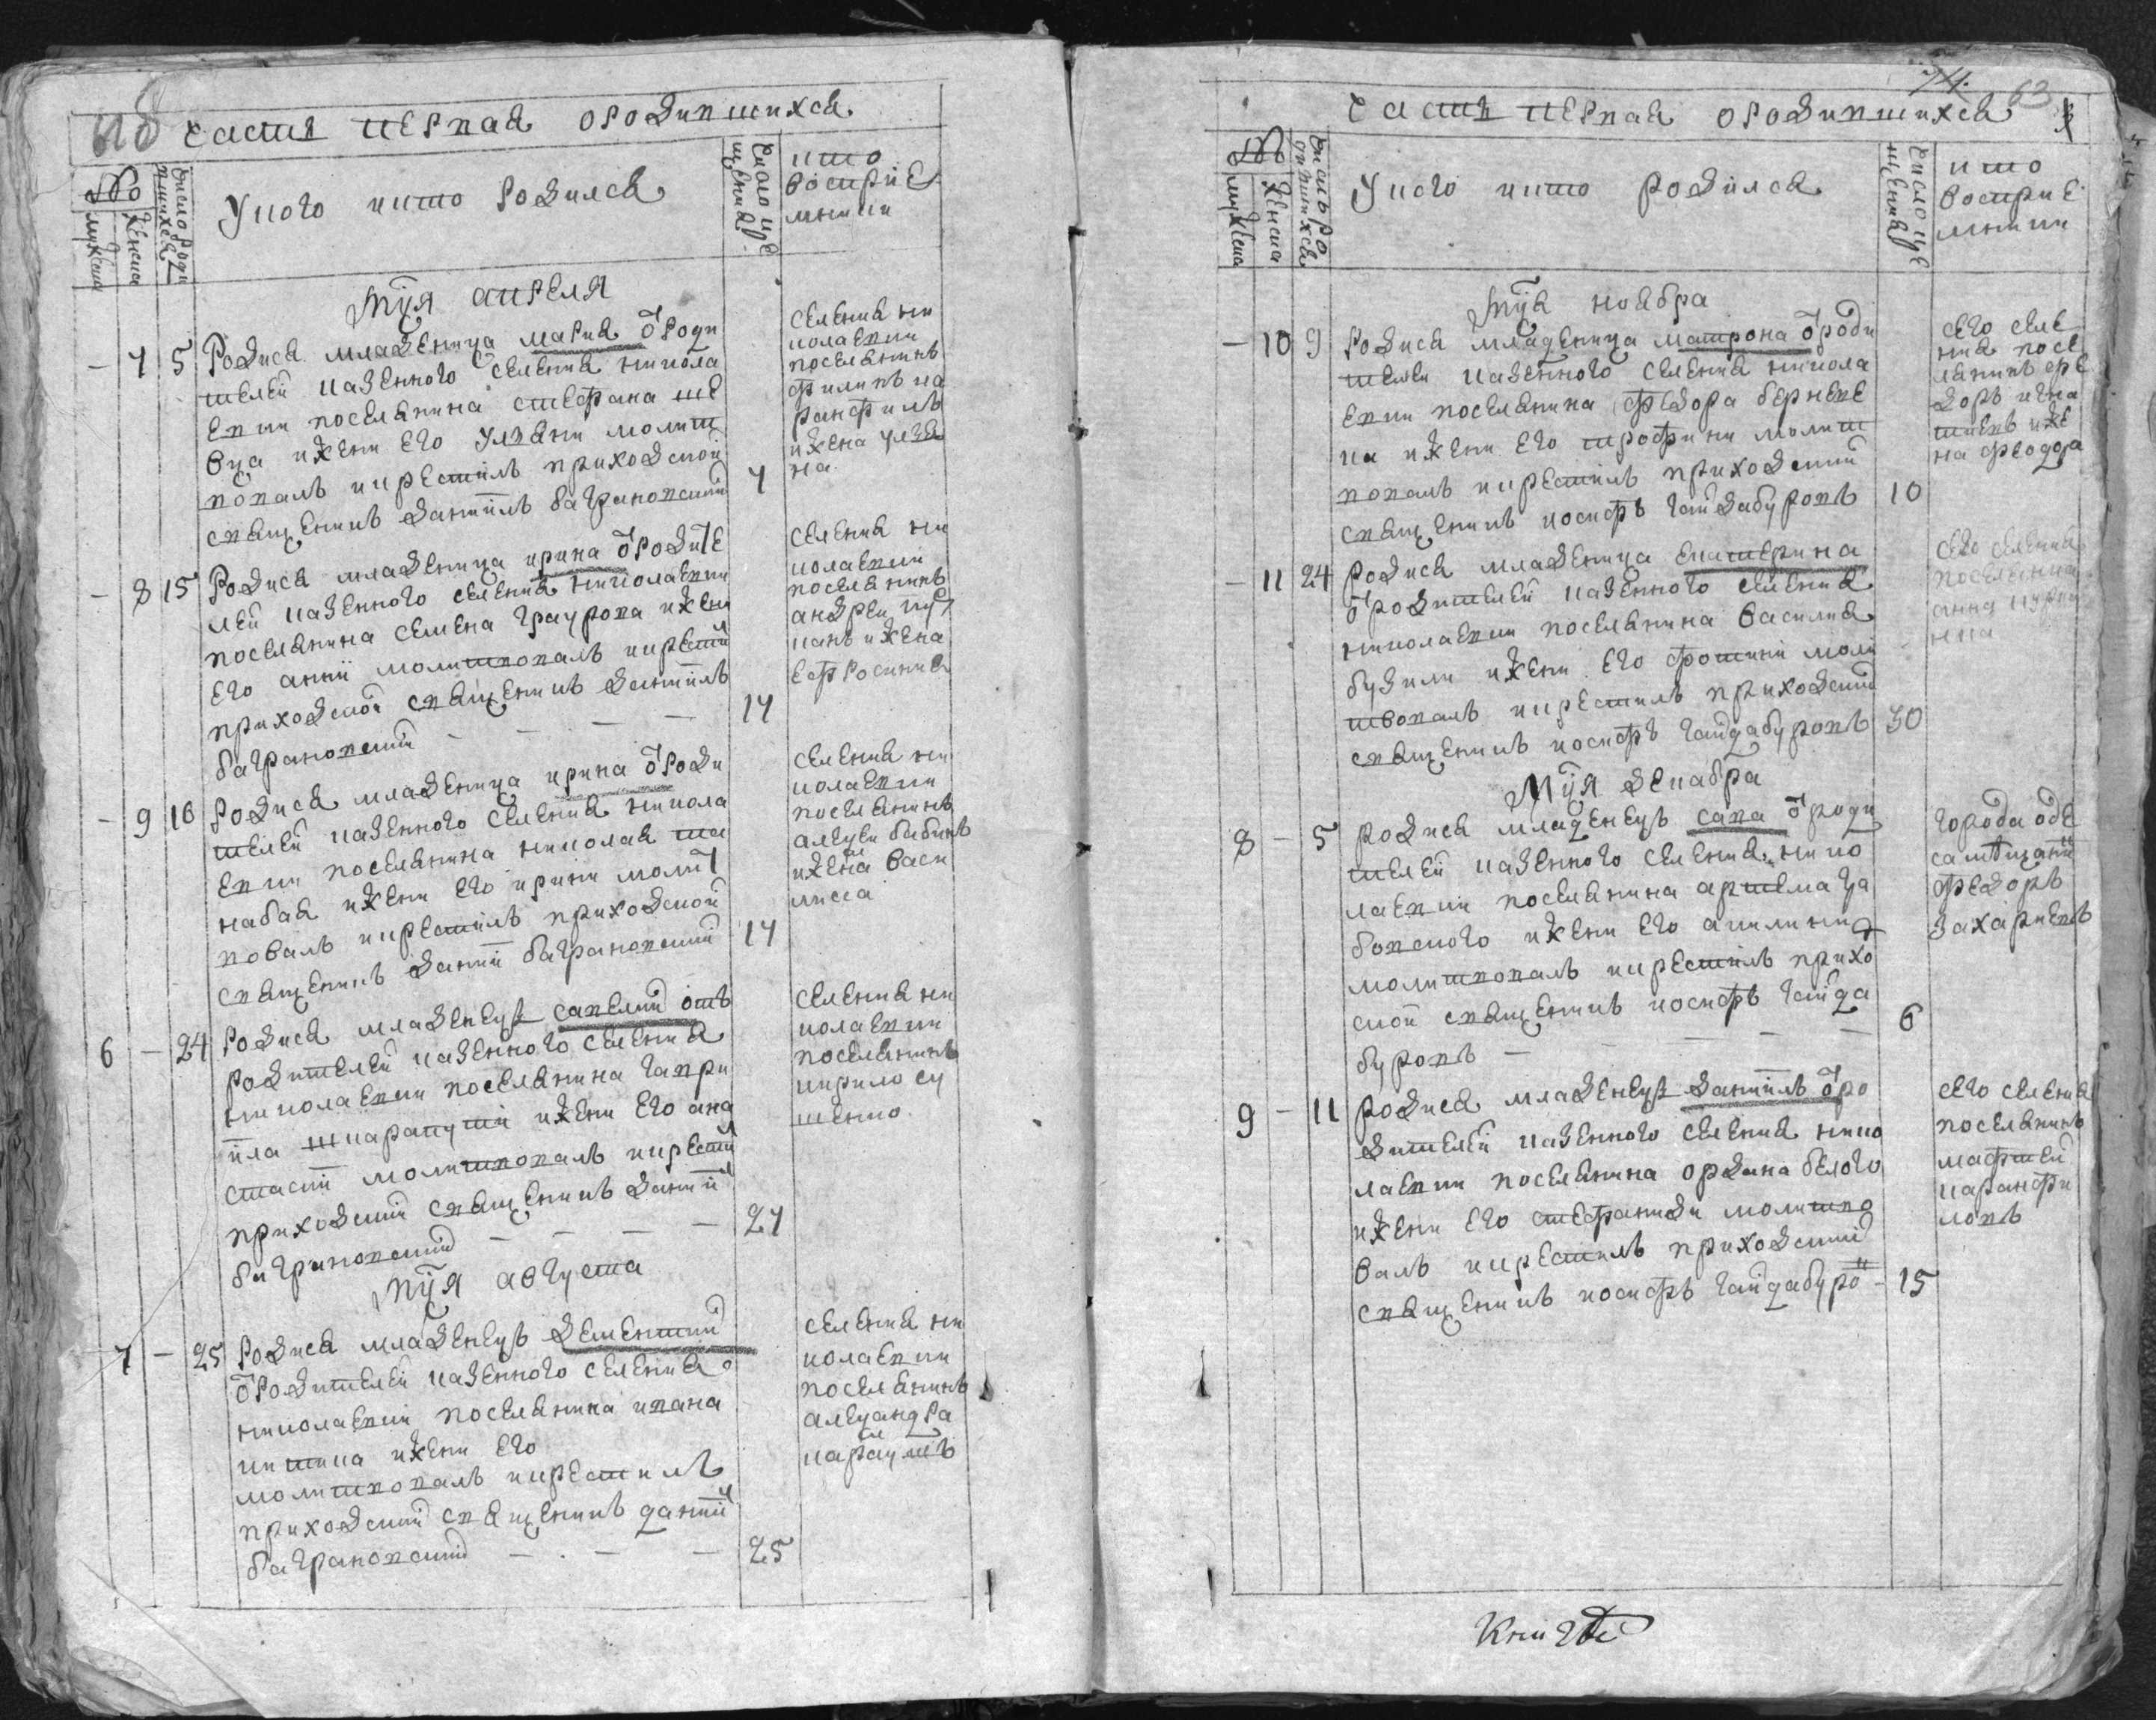 часть первая ородившихся
№
мужеска
женска
число родившихся
У кого кто родился
число крещения
кто восприемники
Мця априля
- 7 5
Родися младеница мария ѿ роди
телей казенного селения никола
евки поселянина стефана ше
вца и жени его улияни молит
вовалъ и крестилъ приходской
священикъ даниилъ багриновский
7
селения ни
колаевки
поселянинъ
филипъ ка
ранфилъ
и жена улия
на
- 8 15
Родися младеница ирина ѿ родите
лей казенного селения николаевки
поселянина семена граурова и жени
его анни молитвовалъ и крестил
приходской священикъ даниилъ
багриновский - - -
17
селения ни
колаевки
поселянинъ
андрей
и жена
ефросиния
- 9 16
Родися младеница ирина ѿ роди
телей казенного селения никола
евки поселянина николая та
набая и жени его ирини молит
вовалъ и крестилъ приходской
священикъ даниил багриновский
17
селения ни
колаевки
поселянинъ
алексей бабинъ
и жена васи
лиса
6 - 24
Родися младенецъ савелий отъ
родителей казенного селения
николаевки поселянина гаври
ила шкарапути и жени его ана
стасии молитвовалъ и крестил
приходский священикъ даниил
багриновский - - -
27
селения ни
колаевки
поселянинъ
кирило су
шенко
Мця августа
7 - 25
Родися младенецъ дементий
ѿ родителей казенного селения
николаевки поселянина ивана
китика и жени его
молитвовалъ и крестилъ
приходский священикъ даниил
багриновский - - -
25
селения ни
колаевки
поселянинъ
александра
караулъ
74. 63
часть первая ородившихся
№
мужеска
женска
число родившихся
У кого кто родился
число крещения
кто восприемники
Мця ноября
- 10 9
Родися младеница матрона ѿ роди
телей казенного селения никола
евки поселянина федора берneве
ка и жени его трофини молит
вовалъ и крестилъ приходский
священикъ иосифъ гайдабуровъ
10
сего селе
ния посе
лянинъ фе
доръ игна
тиевъ и же
на феодора
- 11 24
родися младеница екатерина
ѿ родителей казенного селения
николаевки поселянина василия
бузили и жени его фотинии моли
твовалъ и крестилъ приходский
священикъ иосифъ гайдабуровъ
30
сего селения
поселянка
анна
Мця декабря
8 - 5
родися младенецъ сава ѿ роди
телей казенного селения нико
лаевки поселянина артема га
бовского и жени его акилини
молитвовалъ и крестилъ прихо
ской священикъ иосифъ гайда
буровъ - - - -
6
города оде
са мѣщанин
федоръ
захариевъ
9 - 11
родися младенецъ даниилъ ѿ ро
дителей казенного селения нико
лаевки поселянина ордана белого
и жени его стефаниди молитво
валъ и крестилъ приходский
священикъ иосифъ гайдабуров -
15
сего селения
поселянинъ
мафтей
каранфи
ловъ